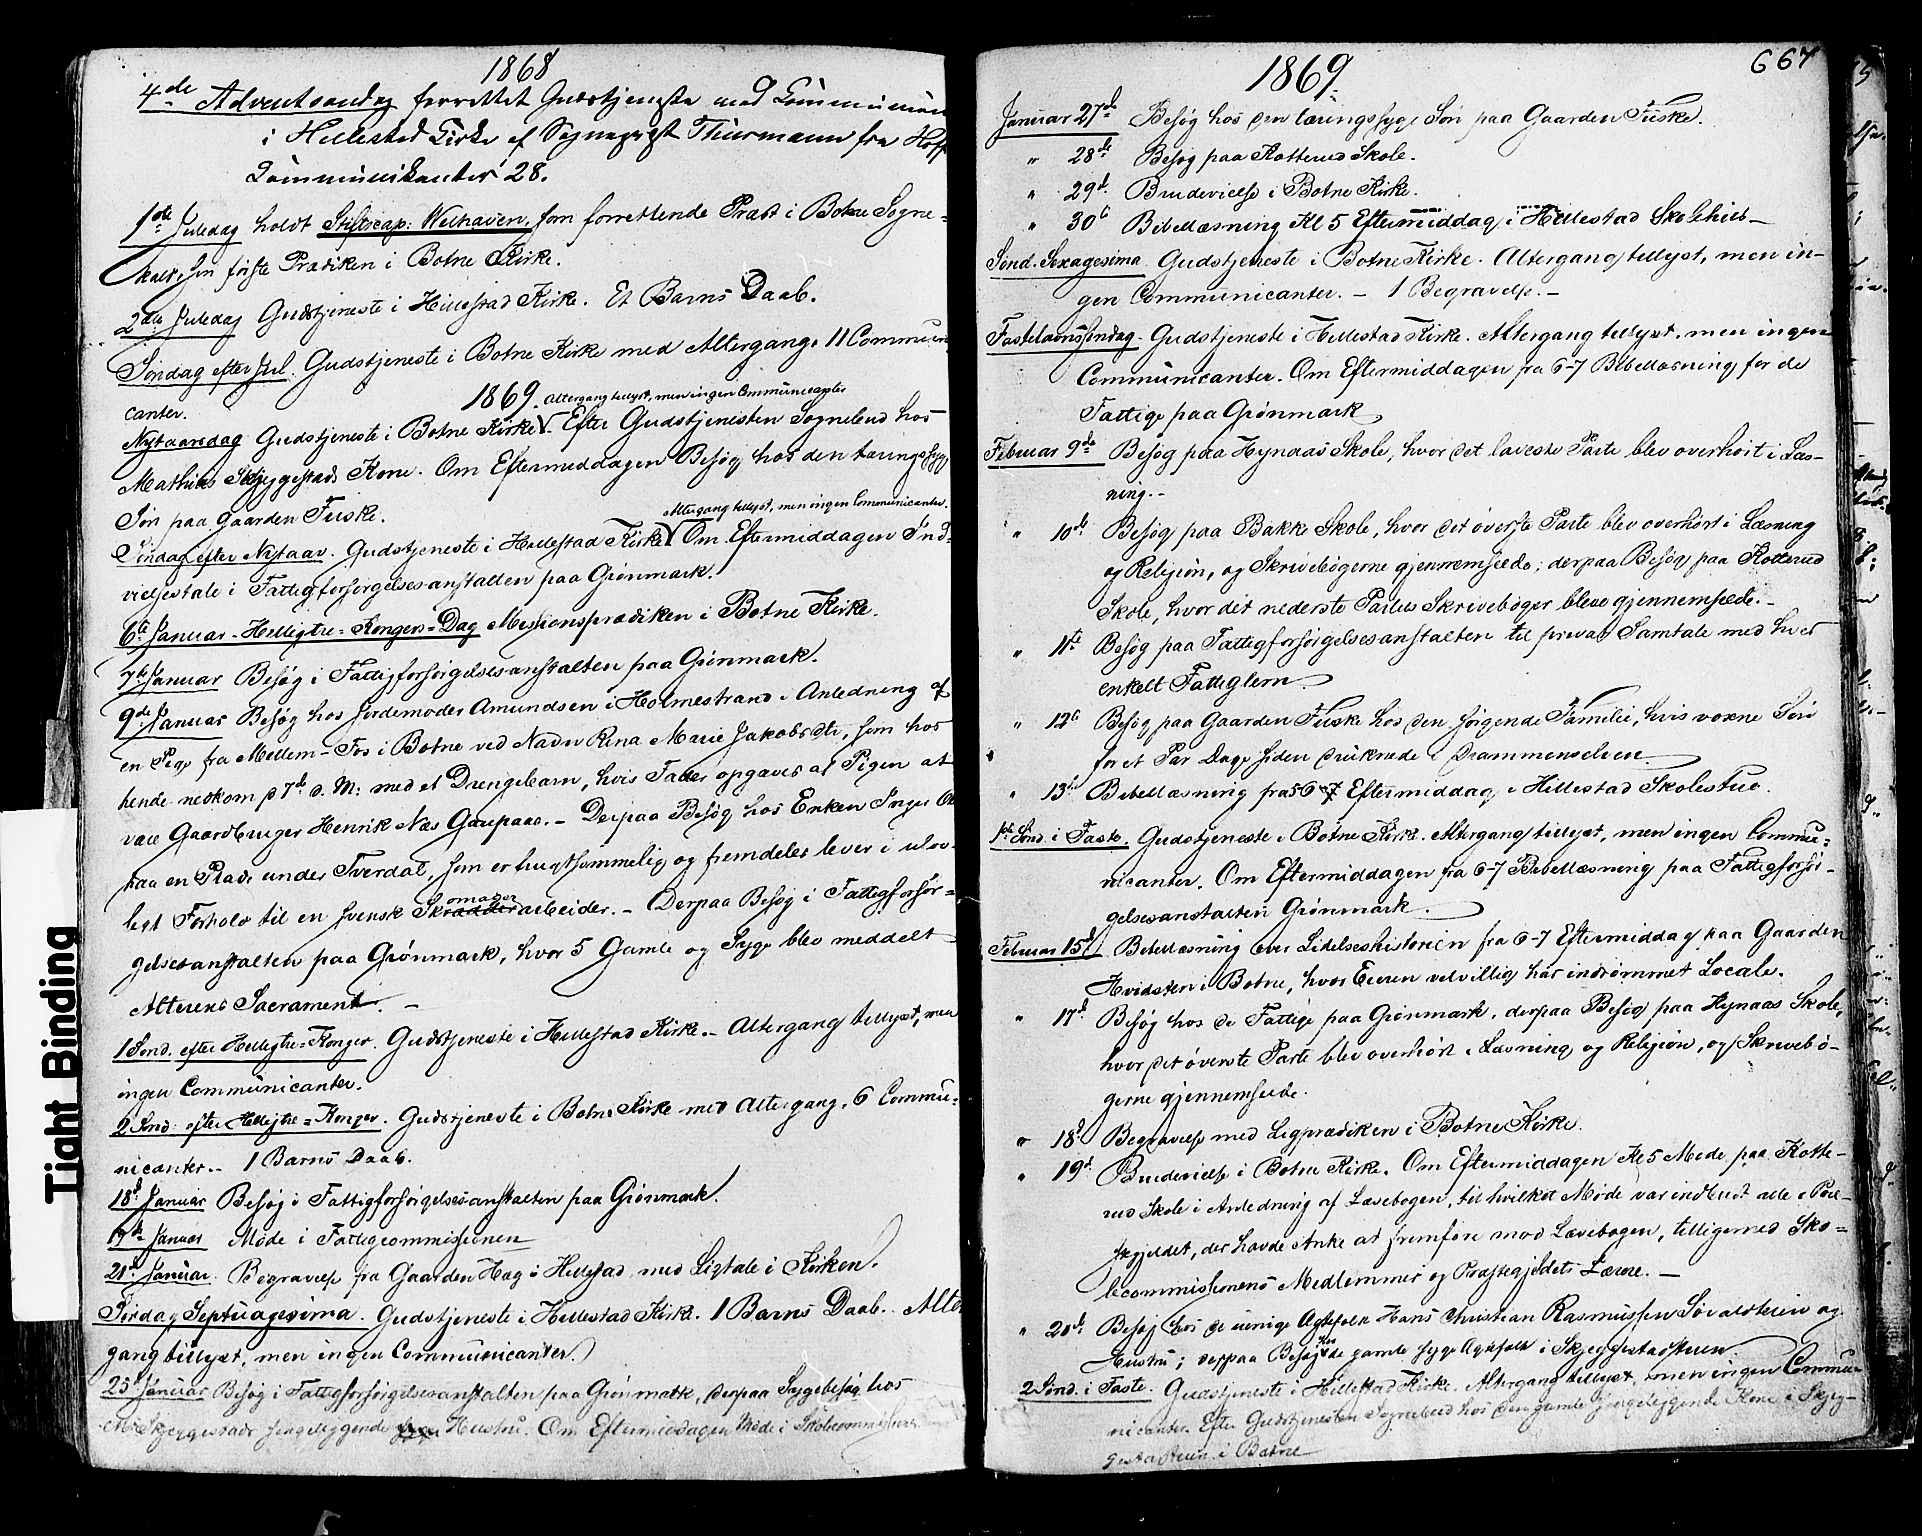 1868
4de Adventsondag forrettet Gudstjeneste med Communion
i Hillestad Kirke af Sogneprest Thurmann fra Hof
Communikanter 28.
1ste Juledag holdt Stiftscap: Welhaven, som forrettende Præst i Botne Sogne-
kald, sin første Prædiken i Botne Kirke.
2den Juledag Gudstjeneste i Hillestad Kirke. Et Barns Daab.
Søndag efter Jul. Gudstjeneste i Botne Kirke med Altergang. 11 Communi
canter.
1869. Altergang tillyst, men ingen Communicanter
Nytaarsdag Gudstjeneste i Botne Kirke V. Efter Gudstjenesten Sognebud hos
Mathias Skjeggestads Kone. Om Eftermiddagen Besøg hos den tæringssyge
Søn paa Gaarden Fuske.
Altergang tillyst, men ingen Communicanter.
Søndag efter Nytaar. Gudstjeneste i Hillestad Kirke V Om Eftermiddagen Ind-
vielsestale i Fattigforsørgelsesanstalten paa Grønmark.
6te Januar - Helligtre-Kongers-Dag Missionsprædiken i Botne Kirke.
7de Januar Besøg i Fattigforsørgelsesanstalten paa Grønmark.
9de Januar Besøg hos Jordemoder Amundsen i Holmestrand i Anledning af
en Pige fra Mellem-Fos i Botne ved Navn Rina Marie Jakobsdtr, som hos
hende nedkom d 7de d. M: med et Drengebarn, hvis Fader opgaves af Pigen at
være Gaardbruger Henrik Næs Gaupaas. - Derpaa Besøg hos Enken Inger
paa en Plads under Tverdal, som er frugtsommelig og fremdeles lever i ulov-
ligt Forhold til en svensk Skomagerarbeider. - Derpaa Besøg i Fattigforsør-
gelsesanstalten paa Grønmark, hvor 5 Gamle og Syge blev meddelt
Alterens Sacrament. -
1 Sønd. efter Helligtre-Konger. Gudstjeneste i Hillestad Kirke. - Altergang tillyst, men
ingen Communicanter.
2 Sønd: efter Helligtre-Konger. Gudstjeneste i Botne Kirke med Altergang. 6 Commu-
nicanter. - 1 Barns Daab.
18de Januar Besøg i Fattigforsørgelsesanstalten paa Grønmark.
19de Januar Møde i Fattigcommissionen
21de Januar. Begravelse fra Gaarden Hag i Hillestad med Ligtale i Kirken.
Søndag Septuagesima. Gudstjeneste i Hillestad Kirke. 1 Barns Daab. Alter
gang tillyst, men ingen Communicanter.
25d Januar Besøg i Fattigforsørgelsesanstalten paa Grønmark, derpaa Sygebesøg hos
Skjeggestads sengeliggende Hustru. Om Eftermiddagen Møde i Skolecommissionen
667
1869.
Januar 27de Besøg hos den tæringssyge Søn paa Gaarden Fuske.
" 28de Besøg paa Kotterud Skole.
" 29d. Brudevielse i Botne Kirke.
" 30d Bibellæsning Kl 5 Eftermiddag i Hillestad Skolehus -
Sønd. Sexagesima. Gudstjeneste i Botne Kirke. Altergang tillyst, men in-
gen Communicanter. - 1 Begravelse. -
Fastelavnssøndag. Gudstjeneste i Hillestad Kirke. Altergang tillyst, men ingen
Communicanter. Om Eftermiddagen fra 6-7 Bibellæsning for de
Fattige paa Grønmark
Februar 9de Besøg paa Hynaas Skole, hvor det laveste Parti blev overhørt i Læs-
ning. -
" 10de Besøg paa Bakke Skole, hvor det øverste Parti blev overhørt i Læsning
og Religion, og Skrivebøgerne gjennemseede; derpaa Besøg paa Kotterud
Skole, hvor det nederste Parties Skrivebøger bleve gjennemseede. -
" 11te Besøg paa Fattigforsørgelsesanstalten til privat Samtale med hver
enkelt Fattiglem.
" 12d Besøg paa Gaarden Fuske hos den sørgende Familie, hvis voxne Søn
for et Par Dage siden druknede i Drammenselven.
" 13de Bibellæsning fra 5-6 Eftermiddag i Hillestad Skolestue.
1ste Sønd. i Faste. Gudstjeneste i Botne Kirke. Altergang tillyst, men ingen Commu-
nicanter. Om Eftermiddagen fra 6-7 Bibellæsning paa Fattigforsør-
gelsesanstalten Grønmark.
Februar 15d Bibellæsning over Lidelseshistorien fra 6-7 Eftermiddag paa Gaarden
Hvidsten i Botne, hvor Eieren velvillig har indrømmet Locale.
" 17d Besøg hos de Fattige paa Grønmark, derpaa Besøg paa Hynaas Skole,
hvor det øverste Parti blev overhørt i Læsning og Religion, og Skrivebø-
gerne gjennemseede.
" 18d Begravelse med Ligprædiken i Botne Kirke.
" 19d. Brudevielse i Botne Kirke. Om Eftermiddagen Kl 5 Møde paa Kotte-
rud Skole i Anledning af Læsebogen, til hvilket Møde var indbudt alle i Præ-
stegjeldet, der havde Anke at fremføre mod Læsebogen, tilligemed Sko-
lecommissionens Medlemmer og Præstegjeldets Lærere. -
" 20de Besøg hos de uenige Ægtefolk Hans Christian Rasmussen og
Hustru; derpaa Besøg hos de gamle syge Ægtefolk i Skjeggestadsteien.
2 Sønd. i Faste. Gudstjeneste i Hillestad Kirke. Altergang tillyst, men ingen Commu-
nicanter. Efter Gudstjenesten Sognebud hos den gamle sengeliggende Kone i Skjeg-
gestadsteien i Botne
Tight Binding